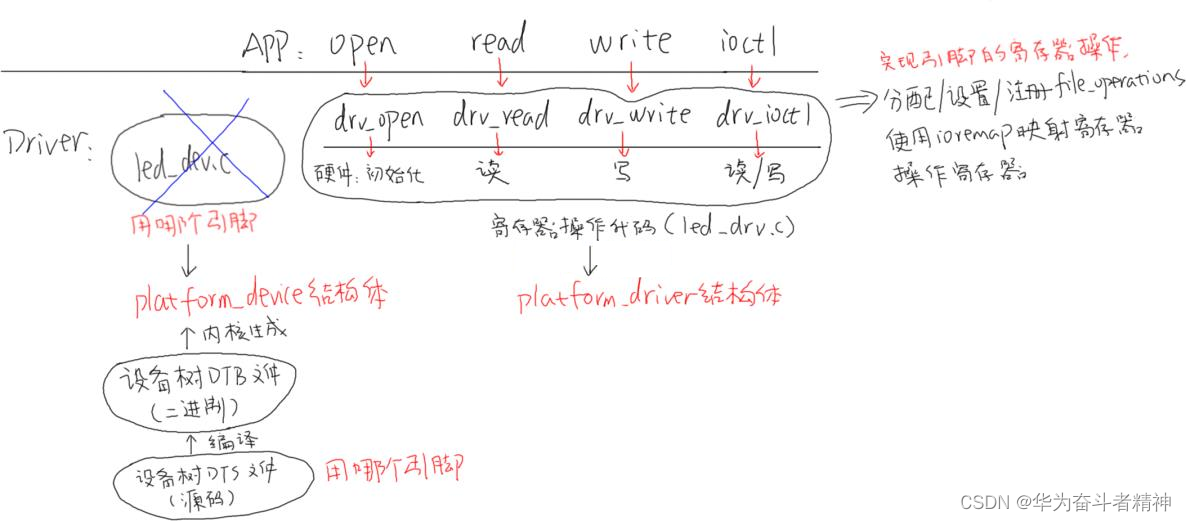 APP: open read write ioctl
实现引脚的寄存器操作.
分配/设置/注册file_operations
使用ioremap映射寄存器
操作寄存器
Driver:
led_dev.c
drv_open drv_read drv_write drv_ioctl
硬件:初始化 读 写 读/写
用哪个引脚
寄存器操作代码(led_drv.c)
platform_device结构体
platform_driver结构体
内核生成
设备树DTB文件
(二进制)
编译
设备树DTS文件
(源码)
用哪个引脚
CSDN @华为奋斗者精神